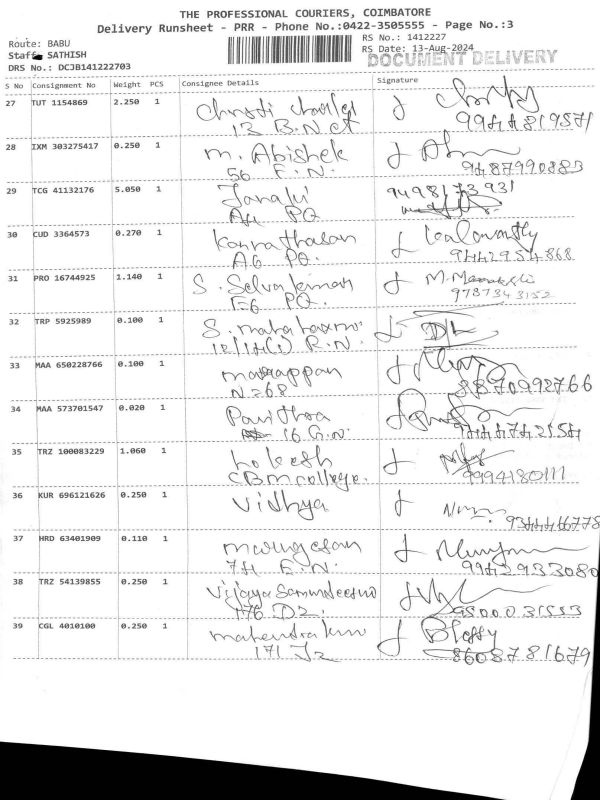 THE PROFESSIONAL COURIERS, COIMBATORE
Delivery Runsheet - PRR - Phone No.:0422-3505555 - Page No.:3
Route: BABU
RS No.: 1412227
Staff SATHISH
RS Date: 13-Aug-2024
DOCUMENT DELIVERY
DRS No.: DCJB141222703
S No Consignment No Weight PCS Consignee Details Signature
27 TUT 1154869 2.250 1
13 B.N.Ct
28 IXM 303275417 0.250 1 M. Abishek
56 F.N. 9487990883
29 TCG 41132176 5.050 1 Janaki 9498173931
A4 PQ
30 CUD 3364573 0.270 1
A6 PQ. 9442954868
31 PRO 16744925 1.140 1 S. Selvakumar
F6 PQ. 9787343152
32 TRP 5925989 0.100 1
33 MAA 650228766 0.100 1 marappan
N268 8870992766
34 MAA 573701547 0.020 1 Pavithra
16 G.N.
35 TRZ 100083229 1.060 1 Lokesh
CBM college. 9994180111
36 KUR 696121626 0.250 1 Vidhya
37 HRD 63401909 0.110 1 murugesan
74 E.N. 9942933080
38 TRZ 54139855 0.250 1
176 D2.
39 CGL 4010100 0.250 1 Blessy
171 J2 8608781679